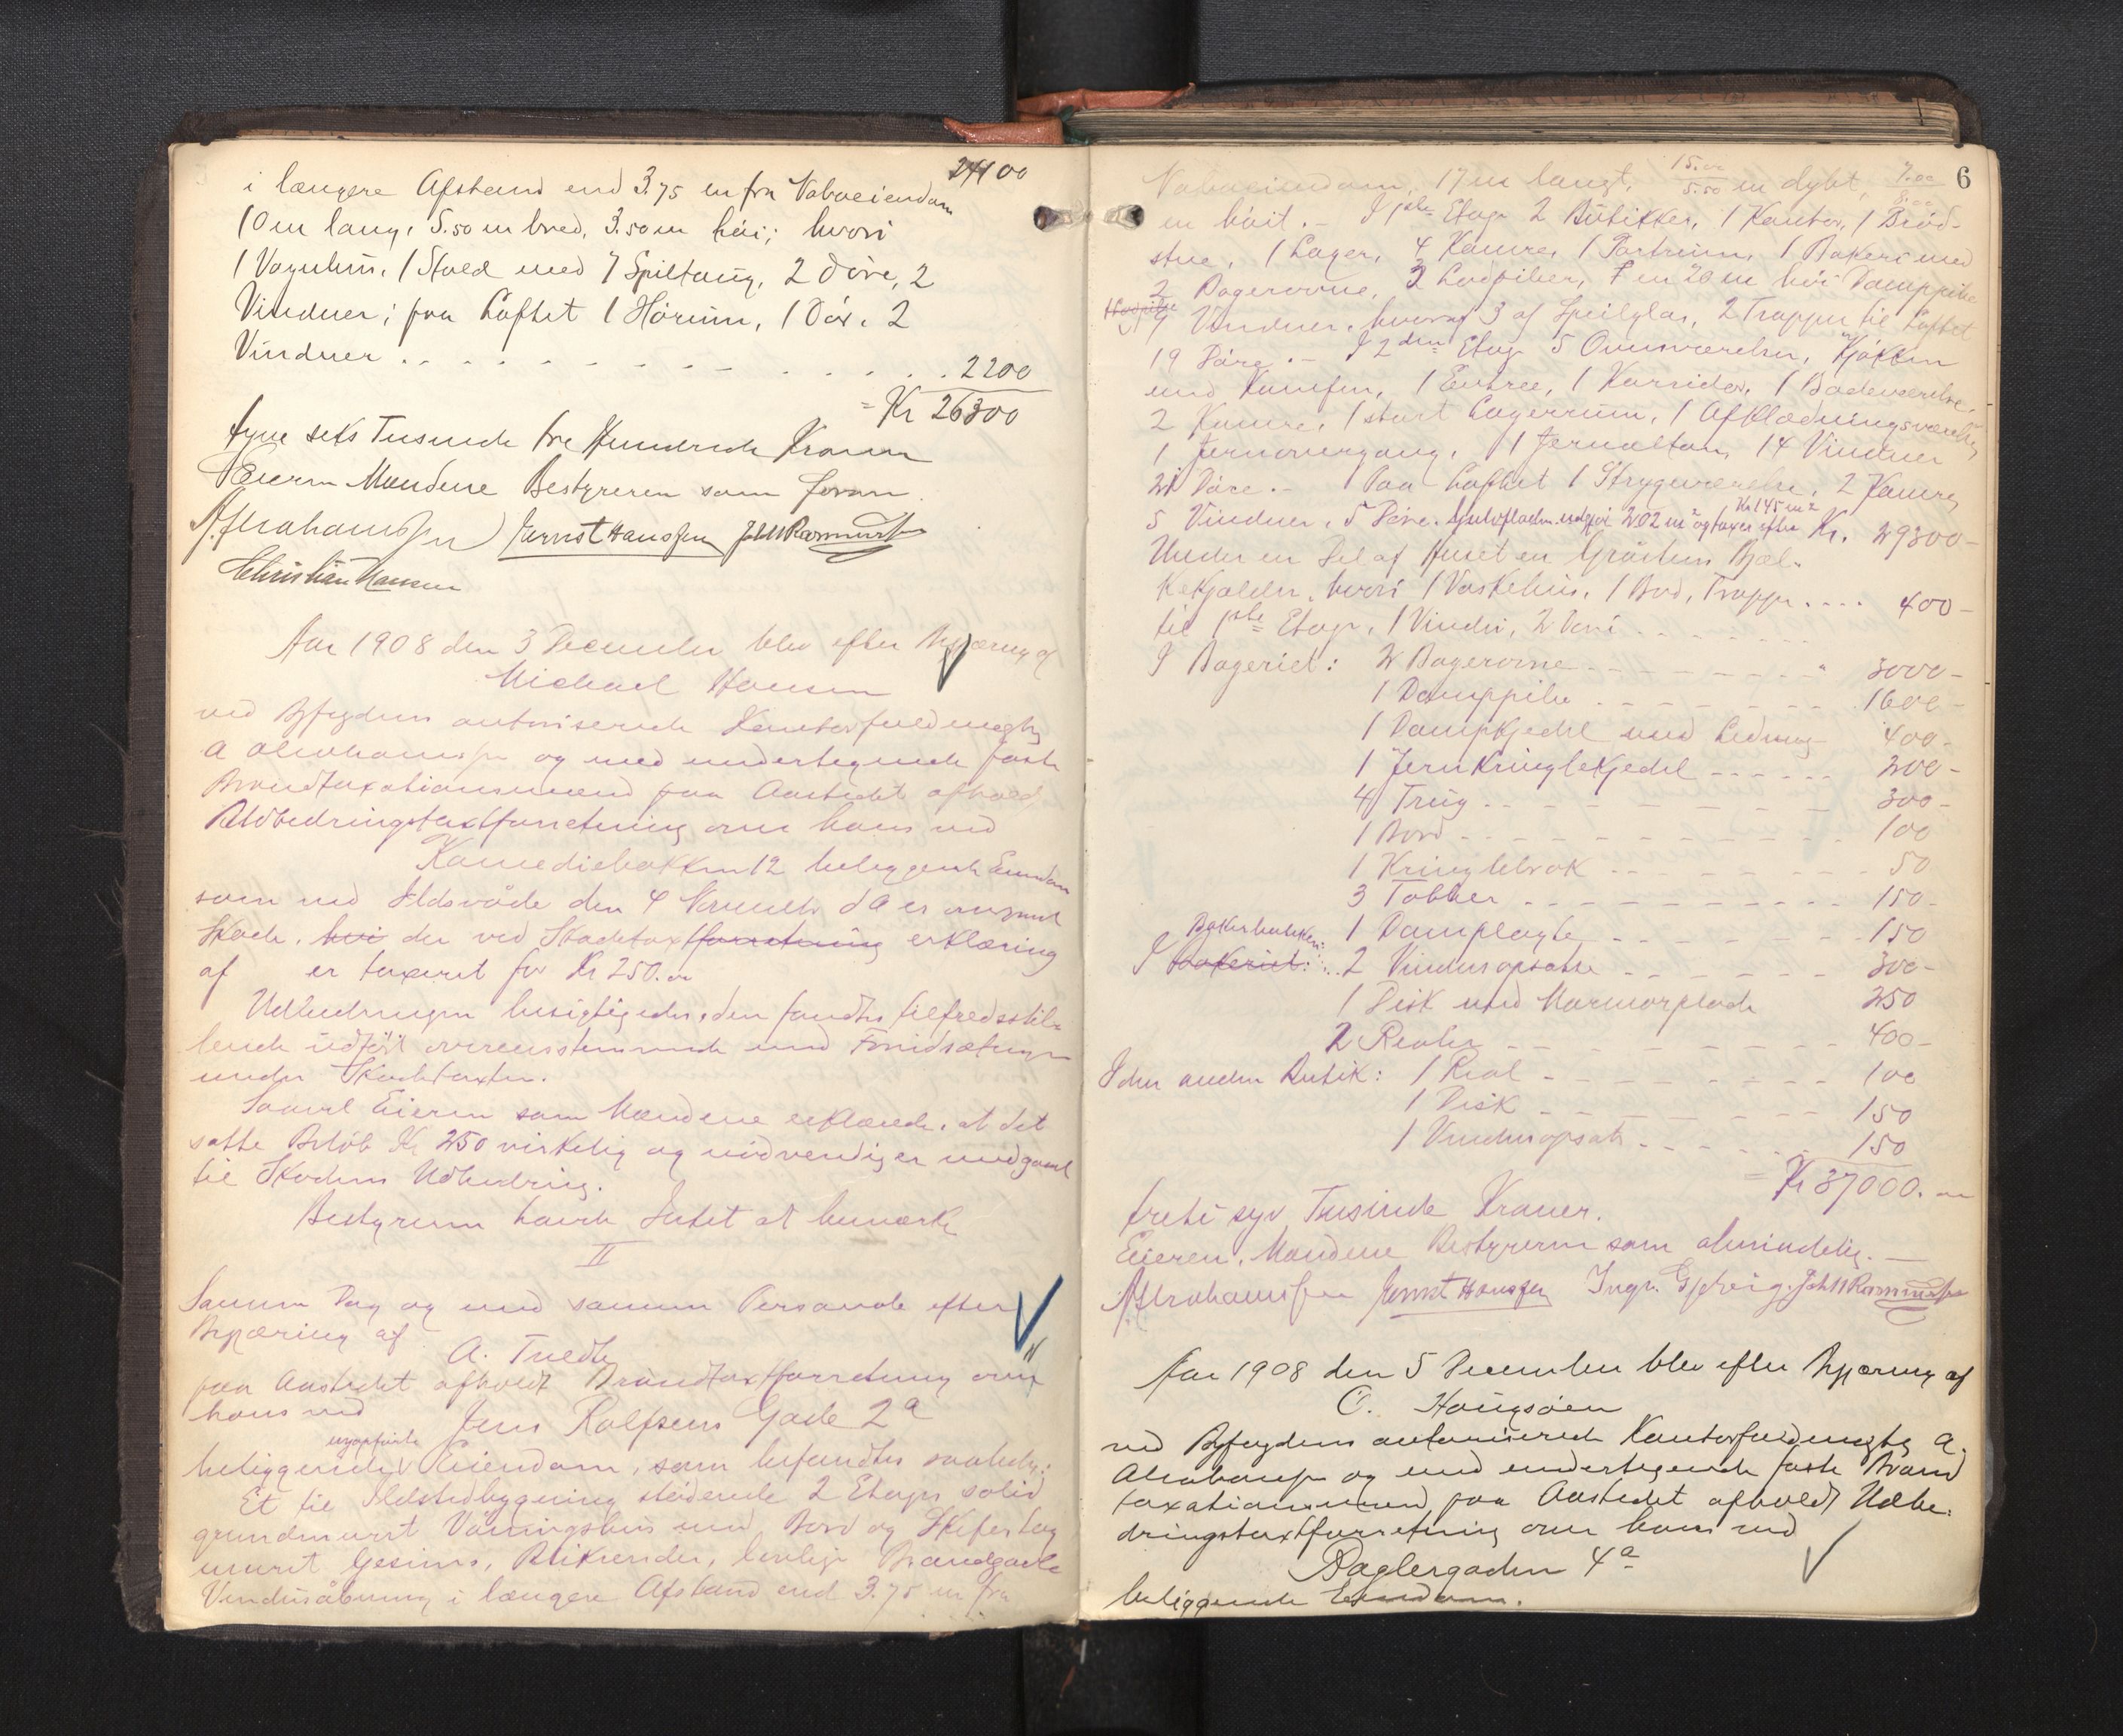 24100
i længere Afstand end 3.75 m fra Naboeiendom
10 m lang, 5.50 m bred, 3.50 m høi; hvori
1 Vognhus, 1 Stald med 7 Spiltaug, 2 Døre, 2
Vinduer; paa Loftet 1 Hørum, 1 Dør, 2
Vinduer . . . . . . . . . . 2200
= Kr 26300
tyve seks Tusinde tre Hundrede Kroner
Eieren Mændene Bestyreren som foran.
A Abrahamssen Ernst Hanssen
Christian Hansen
Aar 1908 den 3 December blev efter Begjæring af
Michael Hansen
ved Byfogdens autoriserede Kontorfuldmægtig
A Abrahamssen og med undertegnede faste
Brandtaxationsmænd paa Aastedet afholdt
Udbedringstaxtforretning over hans ved
Komediebakken 12 beliggende Eiendom
som ved Ildsvåde den 4 November d A er overgaaet
Skade, hvi der ved Skadetaxtforretning erklæring
af er taxeret for Kr 250.00
Udbedringen besigtigedes, den fandtes tilfredsstil-
lende udført overensstemmende med Forudsætningen
under Skadetaxten.
Saavel Eieren som Mændene erklærede, at det
satte Beløb Kr 250 virkelig og nødvendig er medgaaet
til Skadens Udbedring.
Bestyreren havde Intet at bemærke
II
Samme Dag og med samme Personale efter
Begjæring af
A. Tvedt
paa Aastedet afholdt Brandtaxtforretning over
hans ved Jens Rolfsens Gade 2a
nyopførte
beliggende Eiendom, som befandtes saaledes:
Et til Ildstedbygning stødende 2 Etages solid
grundmuret Våningshus med Bord og Skifertag
muret Gesims, Blikrender, lovlige Brandgavle
Vinduesåbning i længere Afstand end 3.75 m fra
6
Naboeiendom, 17 m langt, 15.00/5.50 m dybt, 7.00/8.00
m høit. - I 1ste Etage 2 Butikker, 1 Kontor, 1 Brød-
stue, 1 Lager, 4 Kamre, 1 Portrum, 1 Bakeri med
2 Bagerovne, 3 Ludpiber, 1 en 20 m høi Damppibe
7 Vinduer, hvoraf 3 af Speilglas, 2 Trapper til Loftet
19 Døre. - I 2den Etage 5 Ovnsværelser, Kjøkken
med Komfur, 1 Entree, 1 Korridor, 1 Badeværelse,
2 Kamre, 1 stort Lagerrum, 1 Afklædningsværelse,
1 Jernovergang, 1 Jernaltan, 14 Vinduer
21 Døre. - Paa Loftet 1 Strygeværelse, 2 Kamre,
Kr 145 m2
5 Vinduer, 5 Døre. Gulvfladen udgjør 202 m2 og taxeres efter Kr. 29300-
Under en Del af Huset en Gråstens Bjæl-
kekjælder, hvori 1 Vaskehus, 1 Bod, Trappe . . . . 400-
til 1ste Etage, 1 Vindu, 2 Døre
I Bageriet: 2 Bagerovne - - - - 3000-
1 Damppibe - - - - 1600-
1 Dampkjedel med Ledning - 400-
1 Jern Kringlekjedel - - - - 200-
4 Trug - - - - 300-
1 Bord - - - - 100
1 Kringlebrak - - - - 50
3 Tobber - - - - 150-
1 Damplagte - - - - 150
Bakerbutiken:
I Bakeriet: 2 Vinduesopsatse - - - - 300-
1 Disk med Marmorplade 250
2 Reoler - - - - 400-
I den anden Butik: 1 Reol - - - - 100
1 Disk - - - - 150
1 Vinduesopsats - - - - 150
= Kr 37000.00
treti syv Tusinde Kroner.
Eieren, Mændene Bestyreren som almindelig. -
A Abrahamssen Ernst Hanssen
Aar 1908 den 5 December blev efter Begjæring af
O. Haugsøen
ved Byfogdens autoriserede Kontorfuldmægtig A.
Abrahamssen og med undertegnede faste Brand
taxationsmænd paa Aastedet afholdt Udbe-
dringstaxtforretning over hans ved
Baglergaden 4a
beliggende Eiendom.